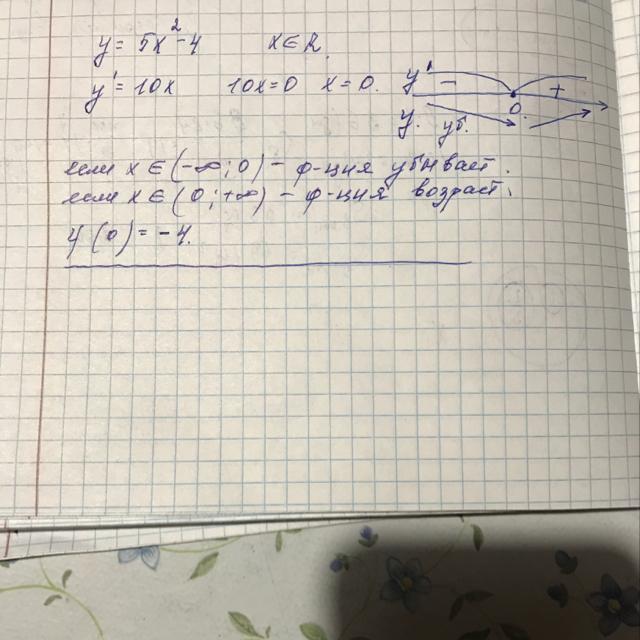 y = 5x² - 4 x ∈ R.
y' = 10x 10x = 0 x = 0. y' - +
0.
y. уб.
если x ∈ (-∞; 0) - ф-ция убывает.
если x ∈ (0; +∞) - ф-ция возраст.
y(0) = -4.